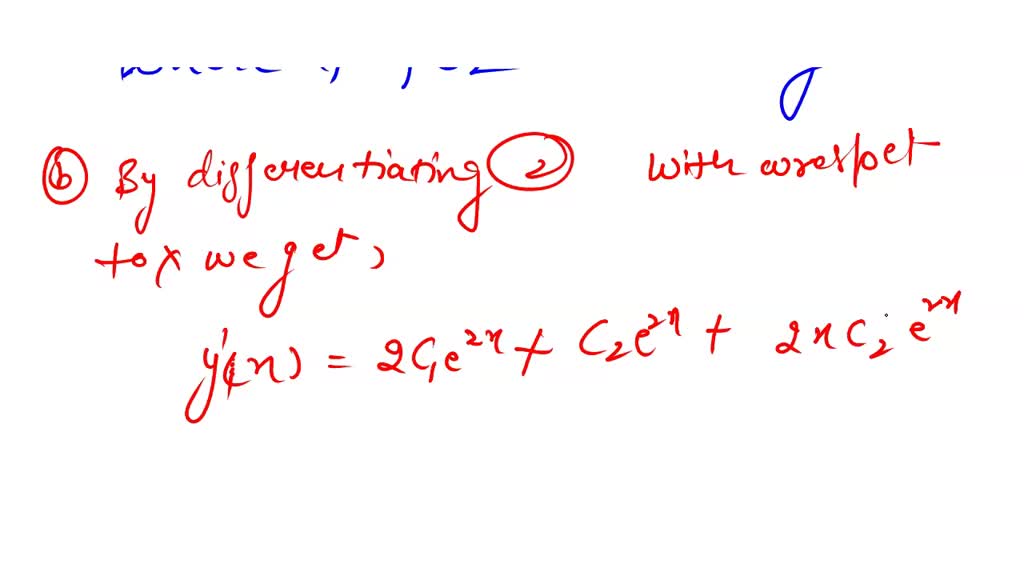 (b) By differentiating (2) with wrespet
to x we get,
y'(x) = 2C₁e²ˣ + C₂e²ˣ + 2xC₂e²ˣ